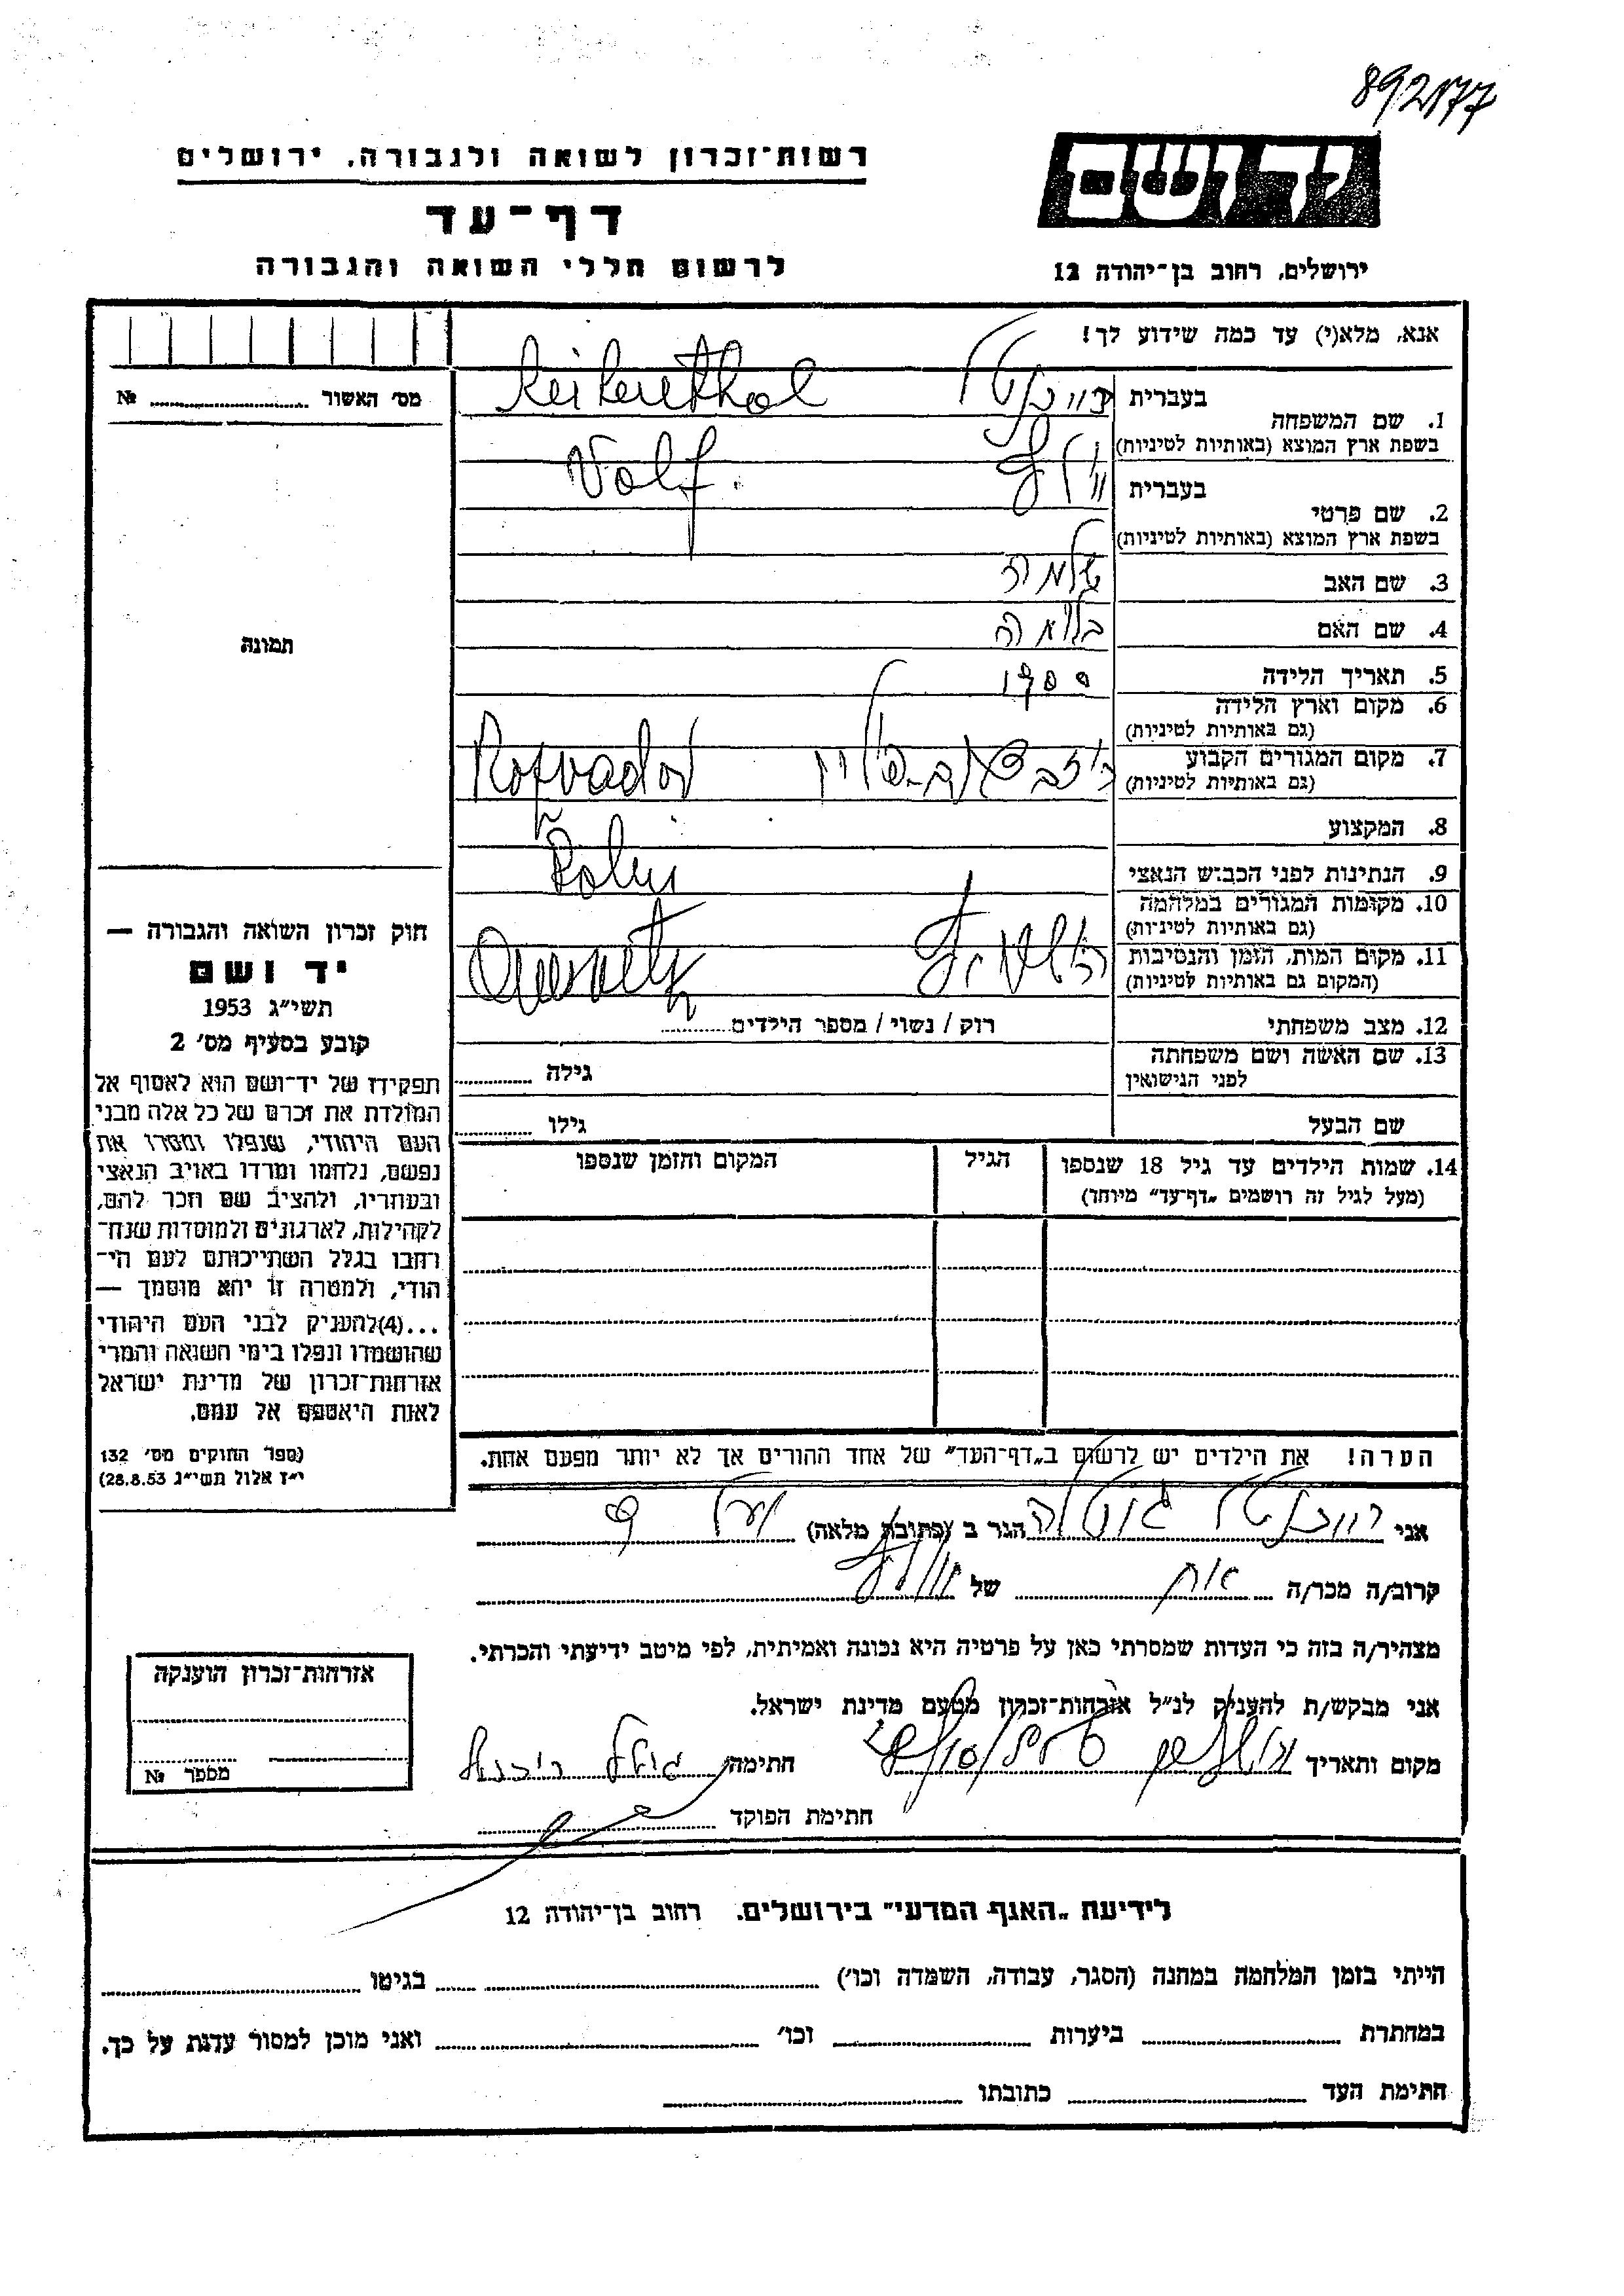 892177
רשות־זכרון לשואה ולגבורה. ירושלים
יד ושם
דף־עד
לרשום חללי השואה והגבורה
ירושלים, רחוב בן־יהודה 12
אנא, מלא(י) עד כמה שידוע לך!
מס׳ האשור № 
1. שם המשפחה
בעברית
בשפת ארץ המוצא (באותיות לטיניות)
2. שם פרטי
בעברית
וולף Volf
בשפת ארץ המוצא (באותיות לטיניות)
3. שם האב שלמה
4. שם האם בלומה
5. תאריך הלידה 1900
6. מקום וארץ הלידה
(גם באותיות לטיניות)
7. מקום המגורים הקבוע
(גם באותיות לטיניות)
8. המקצוע
9. הנתינות לפני הכבוש הנאצי
10. מקומות המגורים במלחמה
(גם באותיות לטיניות)
11. מקום המות, הזמן והנסיבות
(המקום גם באותיות לטיניות)
12. מצב משפחתי רוק / נשוי / מספר הילדים
13. שם האשה ושם משפחתה
לפני הנישואין
גילה
שם הבעל גילו
14. שמות הילדים עד גיל 18 שנספו
(מעל לגיל זה רושמים „דף־עד" מיוחד)
הגיל
המקום והזמן שנספו
הערה! את הילדים יש לרשום ב„דף־העד" של אחד ההורים אך לא יותר מפעם אחת.
תמונה
חוק זכרון השואה והגבורה —
יד ושם
תשי״ג 1953
קובע בסעיף מס׳ 2
תפקידו של יד־ושם הוא לאסוף אל
המולדת את זכרם של כל אלה מבני
העם היהודי, שנפלו ומסרו את
נפשם, נלחמו ומרדו באויב הנאצי
ובעוזריו, ולהציב שם וזכר להם,
לקהילות, לארגונים ולמוסדות שנח־
רבו בגלל השתייכותם לעם הי־
הודי, ולמטרה זו יהא מוסמך —
...(4)להעניק לבני העם היהודי
שהושמדו ונפלו בימי השואה והמרי
אזרחות־זכרון של מדינת ישראל
לאות היאספם אל עמם.
(ספר החוקים מס׳ 132
י״ז אלול תשי״ג 28.8.53)
אני הגר ב (כתובת מלאה)
קרוב/ה מכר/ה אח של וולף
מצהיר/ה בזה כי העדות שמסרתי כאן על פרטיה היא נכונה ואמיתית, לפי מיטב ידיעתי והכרתי.
אני מבקש/ת להעניק לנ״ל אזרחות־זכרון מטעם מדינת ישראל.
מקום ותאריך חתימה
חתימת הפוקד
אזרחות־זכרון הוענקה
מספר №
לידיעת „האגף המדעי" בירושלים. רחוב בן־יהודה 12
הייתי בזמן המלחמה במחנה (הסגר, עבודה, השמדה וכו׳) בגיטו
במחתרת ביערות וכו׳ ואני מוכן למסור עדות על כך.
חתימת העד כתובתו